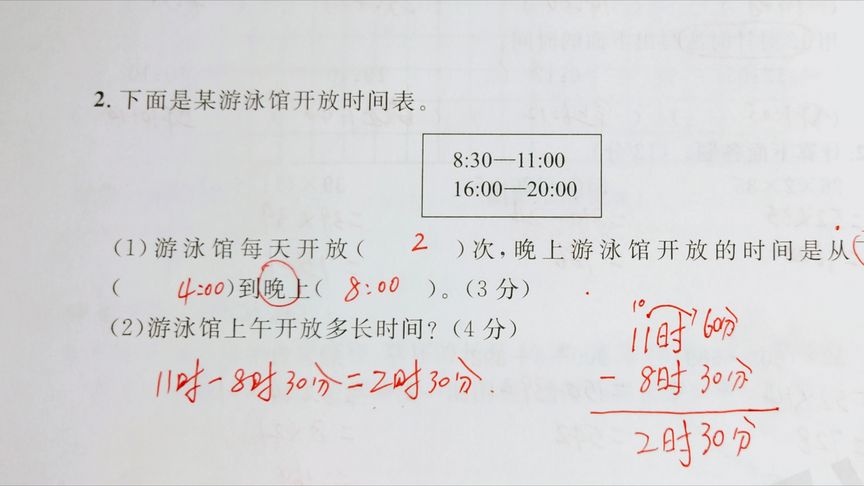 2. 下面是某游泳馆开放时间表。
8:30—11:00
16:00—20:00
(1)游泳馆每天开放( 2 )次,晚上游泳馆开放的时间是从
( 4:00)到晚上( 8:00 )。(3分)
(2)游泳馆上午开放多长时间?(4分)
11时-8时30分=2时30分
10
11时 60分
- 8时 30分
2时30分